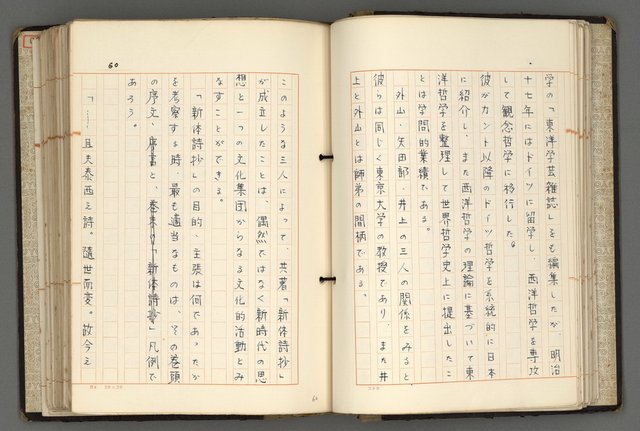 学の「東洋学芸雑誌」をも編集したが、明治
十七年にはドイツに留学し、西洋哲学を専攻
して観念哲学に移行した。
彼がカント以降のドイツ哲学を系統的に日本
に紹介し、また西洋哲学の理論に基づいて東
洋哲学を整理して世界哲学史上に提出したこ
とは学問的業績である。
外山、矢田部、井上の三人の関係をみると
彼らは同じく東京大学の教授であり、また井
上と外山とは師弟の間柄である。
60
このような三人によって、共著「新体詩抄」
が成立したことは、偶然ではなく新時代の思
想と一つの文化集団からなる文化的活動とみ
なすことができる。
「新体詩抄」の目的、主張は何であったか
を考察する時、最も適当なものは、その巻頭
の序文、「新体詩抄」凡例で
あろう。
「……且夫泰西之詩。随世而変。故今之